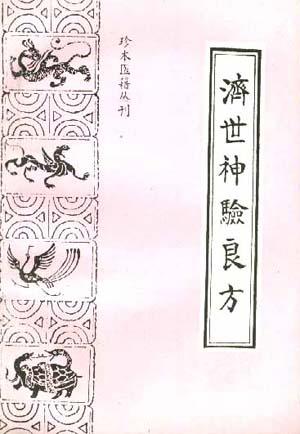 濟世神驗良方
珍本医籍丛刊